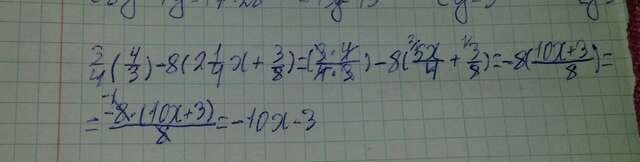 3/4(4/3)-8(2 1/4 x+3/8)=(3·4/4·3)-8(5x/4+3/8)=-8(10x+3/8)=
=-8·(10x+3)/8=-10x-3